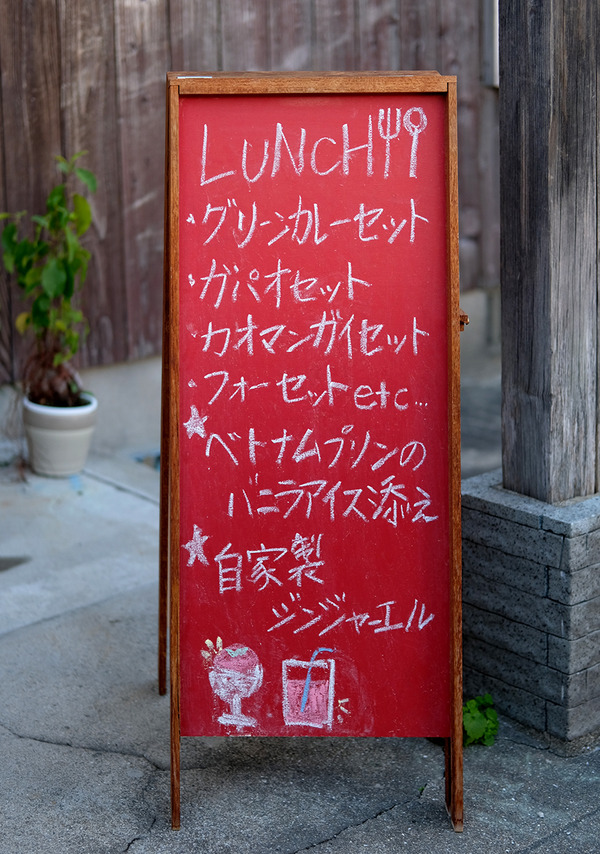 LUNCH
・グリーンカレーセット
・ガパオセット
・カオマンガイセット
・フォーセットetc...
★ベトナムプリンの
バニラアイス添え
★自家製
ジンジャーエル